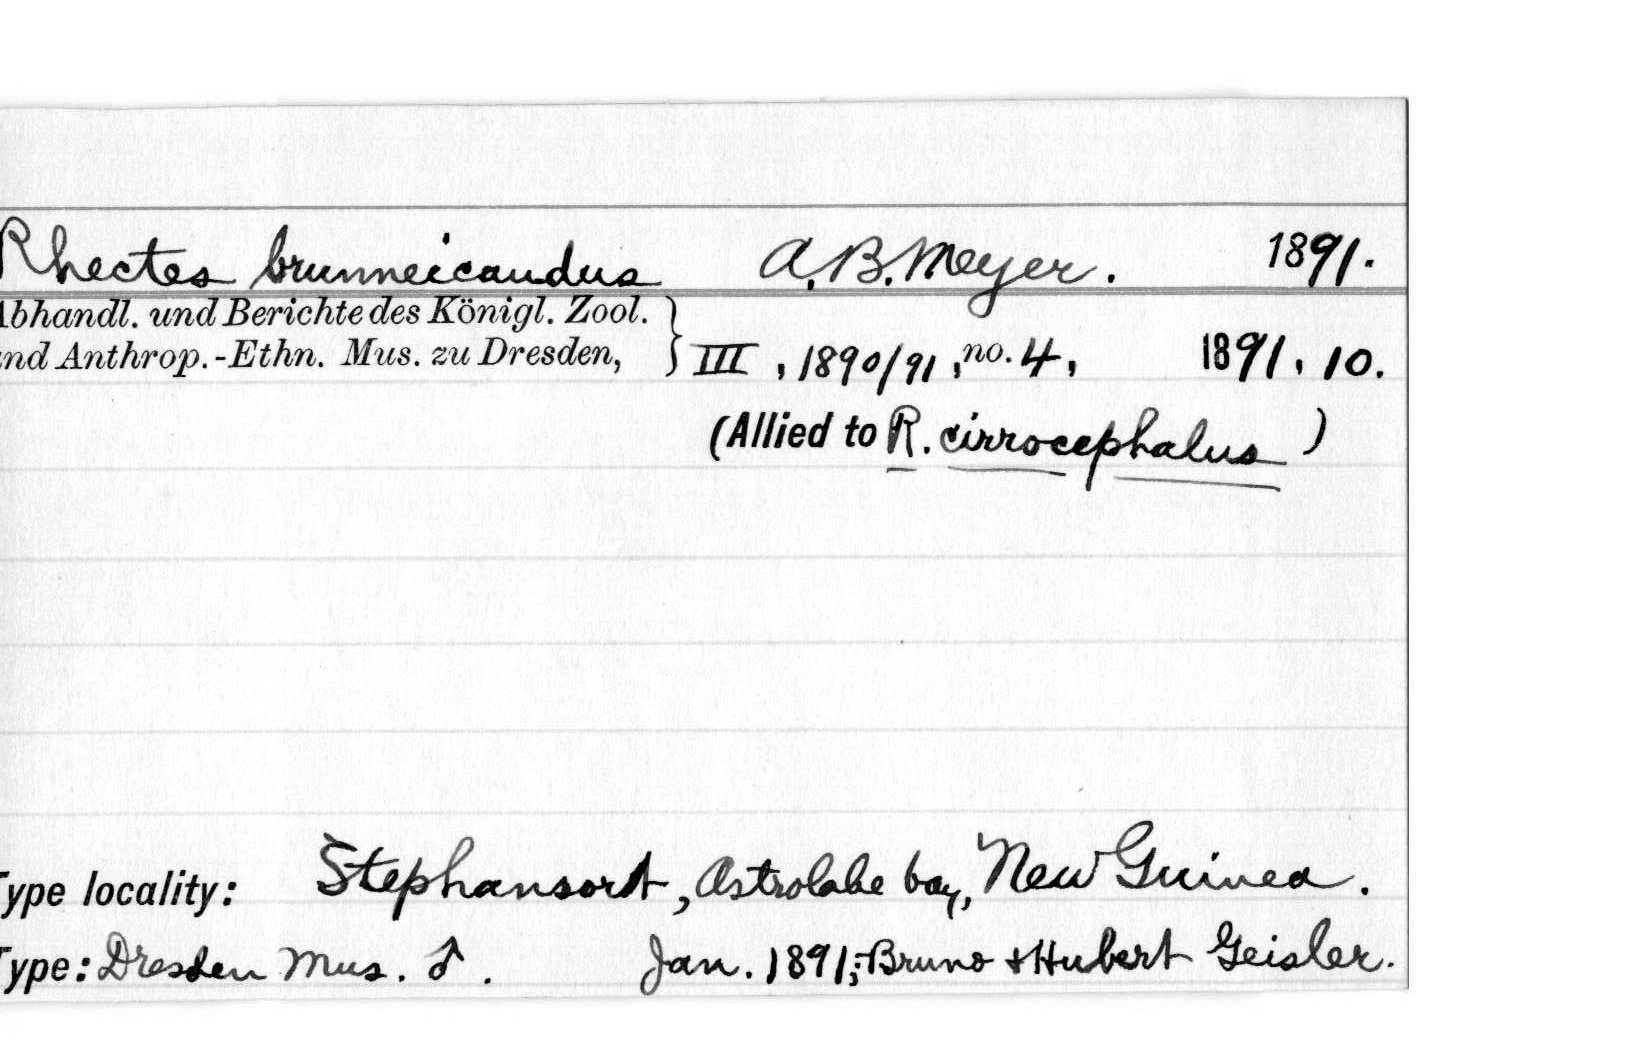 Rhectes brunneicaudus A. B. Meyer. 1891.
Abhandl. und Berichte des Königl. Zool.
und Anthrop.-Ethn. Mus. zu Dresden, } III, 1890/91, no. 4, 1891, 10.
(Allied to R. cirrocephalus )
Type locality: Stephansort, Astrolabe bay, New Guinea.
Type: Dresden Mus. ♂. Jan. 1891; Bruno + Hubert Geisler.